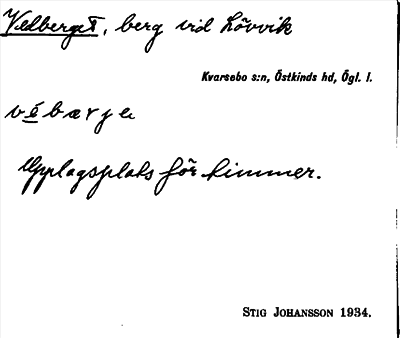 Vedberget, berg vid Lövvik
Kvarsebo s:n, Östkinds hd, Ögl. l.
vébærje
Upplagsplats för timmer.
STIG JOHANSSON 1934.